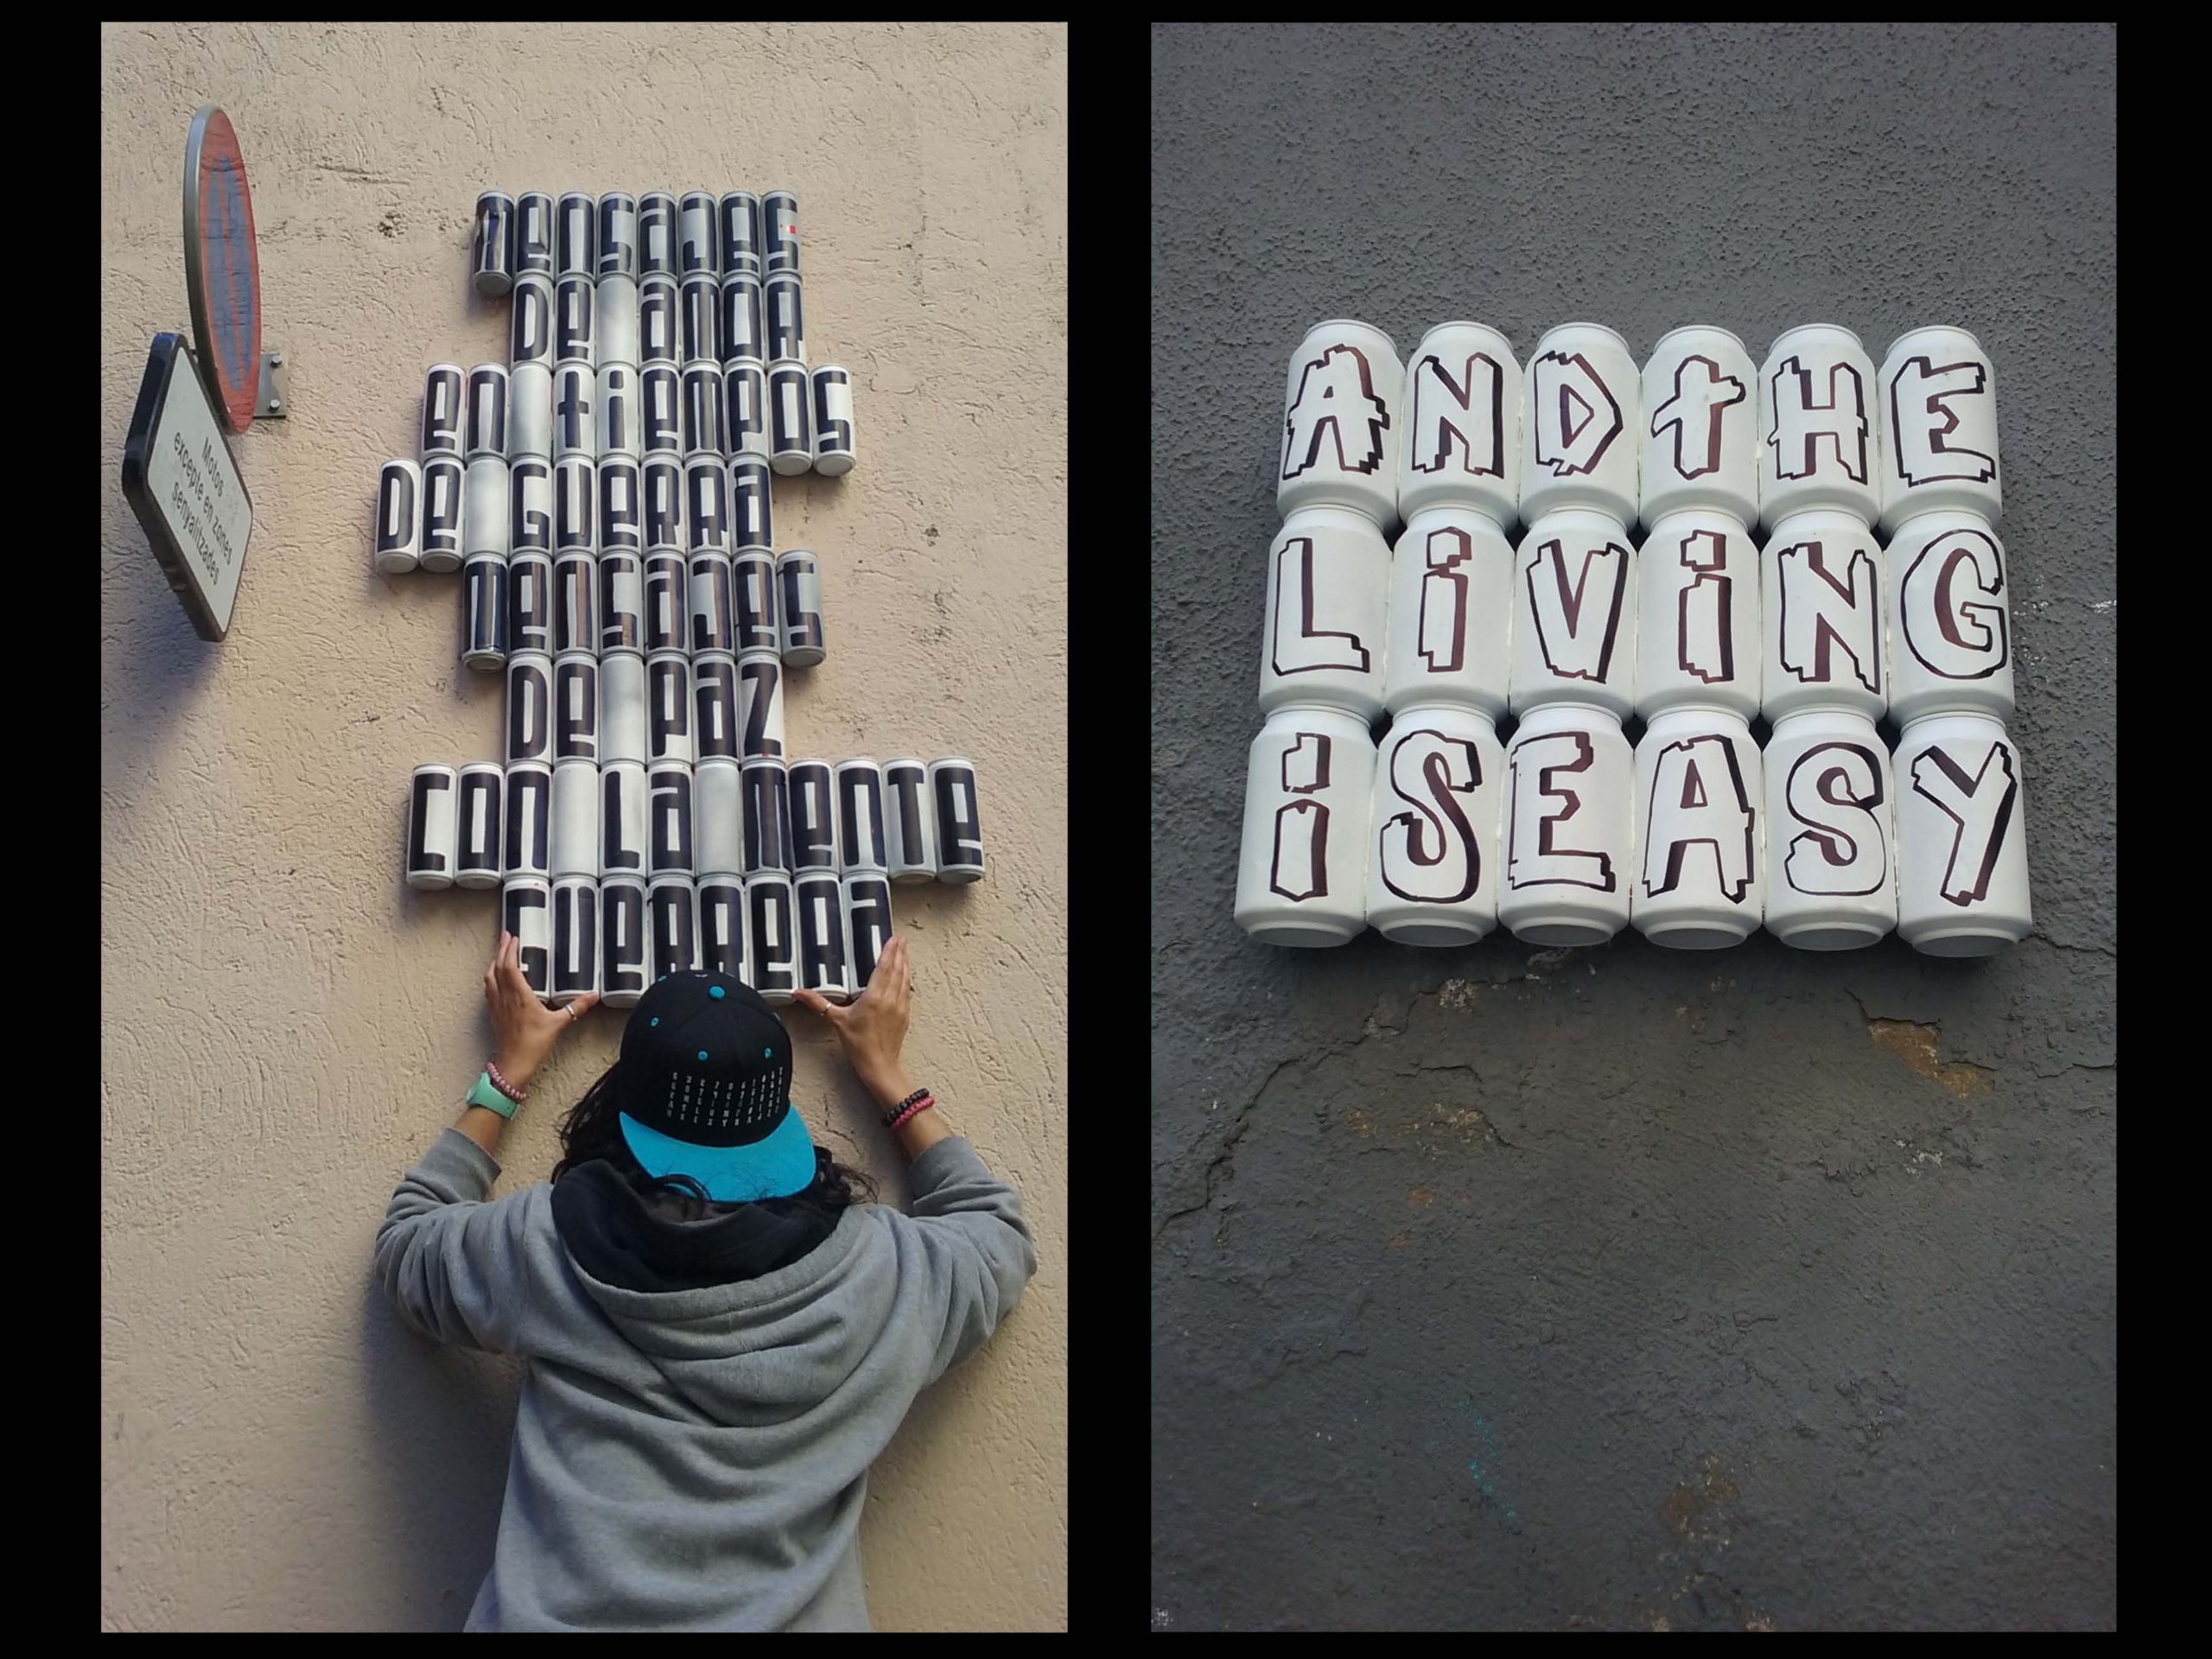 mensajes
De amor
en tiempos
De Guerra
mensajes
De paz
con la mente
Guerrera
Motos
excepte en zones
senyalitzades
AND tHE
LiViNG
iS EASY